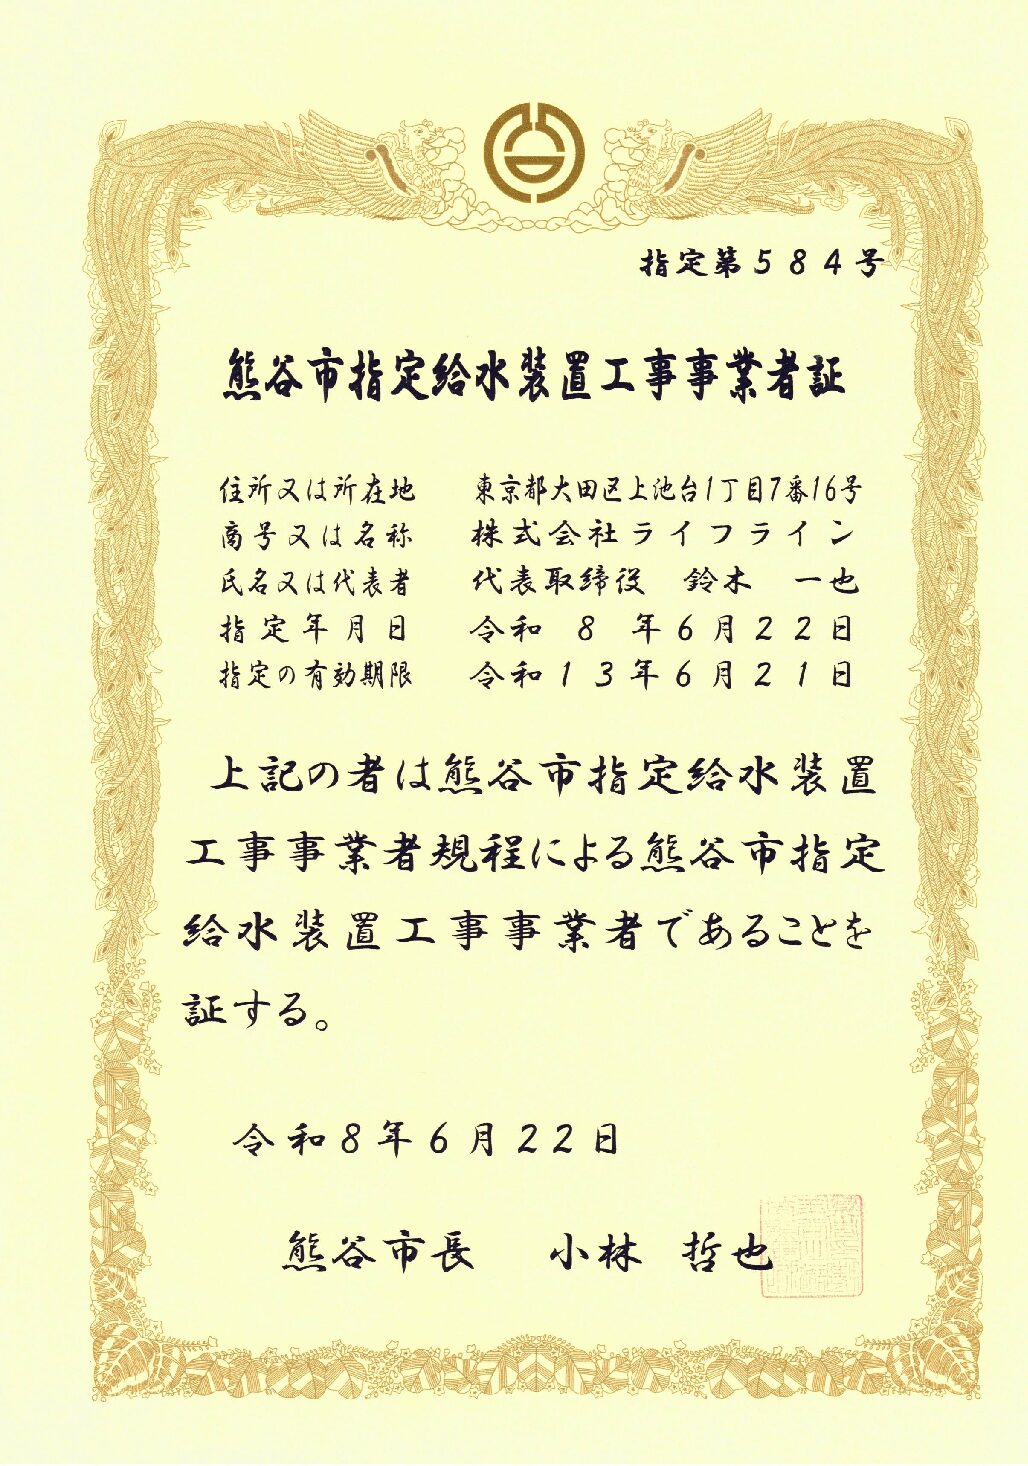 指定第５８４号
熊谷市指定給水装置工事事業者証
住所又は所在地　東京都大田区上池台1丁目7番16号
商号又は名称　株式会社ライフライン
氏名又は代表者　代表取締役　鈴木　一也
指定年月日　令和　８　年６月２２日
指定の有効期限　令和１３年６月２１日
上記の者は熊谷市指定給水装置
工事事業者規程による熊谷市指定
給水装置工事事業者であることを
証する。
令和８年６月２２日
熊谷市長　小林　哲也